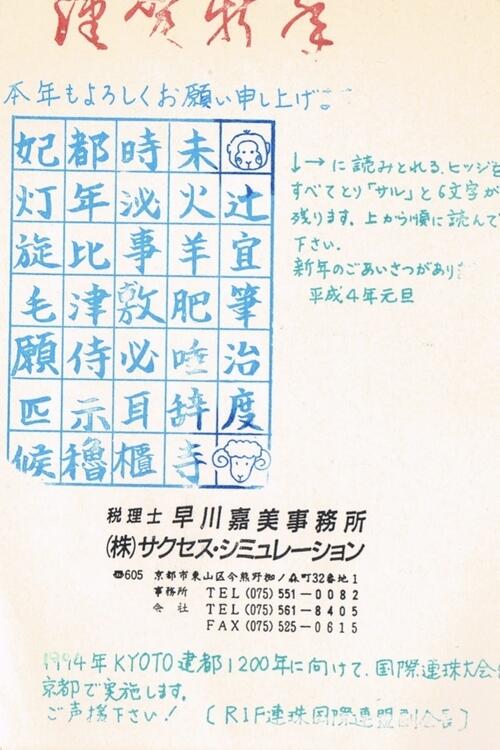 謹賀新年
本年もよろしくお願い申し上げ
妃 都 時 未
灯 年 泌 火 辻
旋 比 事 羊 宜
毛 津 敷 肥 筆
願 侍 必 唾 治
匹 示 耳 辞 度
候 櫓 櫃 寺
↓→に読みとれる、ヒツジを
すべてとり「サル」と6文字が
残ります。上から順に読んで
下さい.
新年のごあいさつがあり
平成4年元旦
税理士 早川嘉美事務所
(株)サクセス・シミュレーション
☎605 京都市東山区今熊野椥ノ森町32番地1
事務所 TEL(075)551-0082
会社 TEL(075)561-8405
FAX(075)525-0615
1994年KYOTO建都1200年に向けて、国際連珠大会
京都で実施します。
ご声援下さい! (RIF連珠国際連盟副会長)